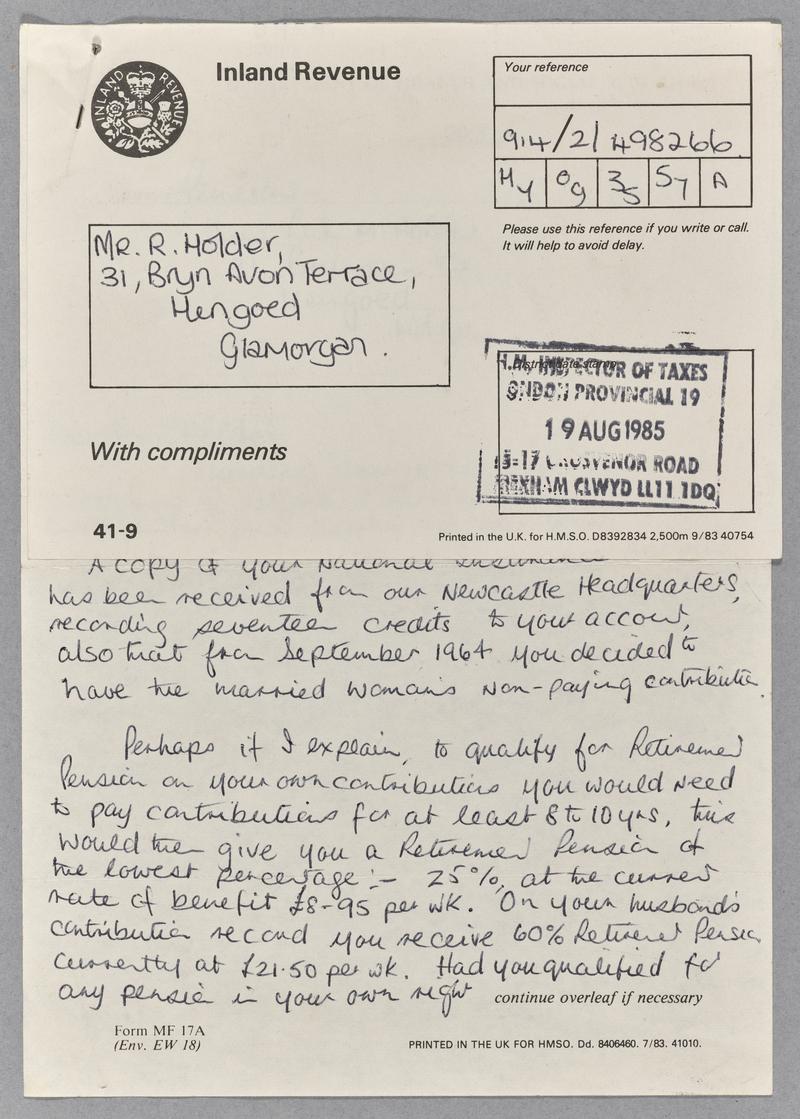 INLAND REVENUE
Inland Revenue
Your reference
914/21 498266
HY 09 35 57 A
Please use this reference if you write or call.
It will help to avoid delay.
Mr. R. Holder,
31, Bryn Avon Terrace,
Hengoed
Glamorgan.
H.M. INSPECTOR OF TAXES
ONDON PROVINCIAL 19
19 AUG 1985
15-17 GROSVENOR ROAD
REXHAM CLWYD LL11 1DQ
With compliments
41-9
Printed in the U.K. for H.M.S.O. D8392834 2,500m 9/83 40754
A copy of your National Insurance
has been received from our Newcastle Headquarters,
recording seventeen credits to your account,
also that from September 1964 you decided to
have the married woman's non-paying contribution.
Perhaps if I explain, to qualify for Retirement
Pension on your own contributions you would need
to pay contributions for at least 8 to 10 yrs, this
would then give you a Retirement Pension of
the lowest percentage :- 25%, at the current
rate of benefit £8-95 per wk. On your husband's
contribution record you receive 60% Retirement Pension
currently at £21.50 per wk. Had you qualified for
any pension in your own right
continue overleaf if necessary
Form MF 17A
(Env. EW 18)
PRINTED IN THE UK FOR HMSO. Dd. 8406460. 7/83. 41010.